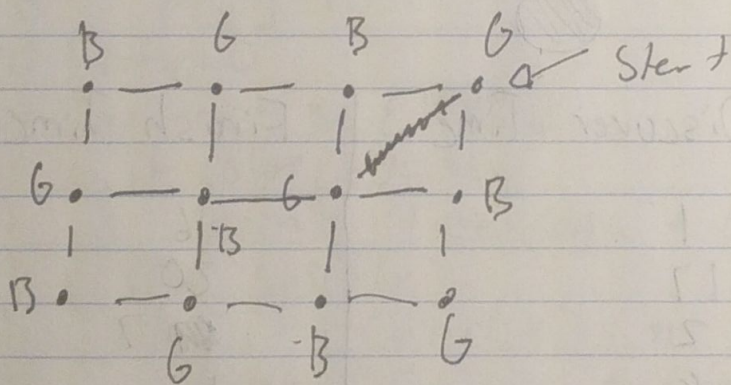 B G B G Start
G B G B
B G B G